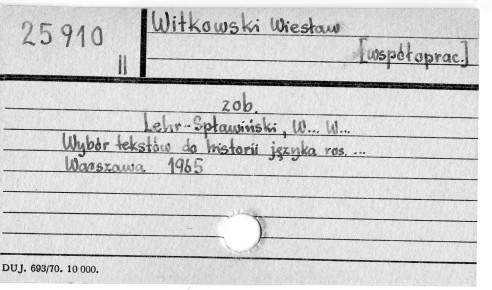 25910
II
Witkowski Wiesław
[współoprac.]
zob.
Lehr-Spławiński, W... W...
Wybór tekstów do historii języka ros. ...
Warszawa 1965
DUJ. 693/70. 10 000.